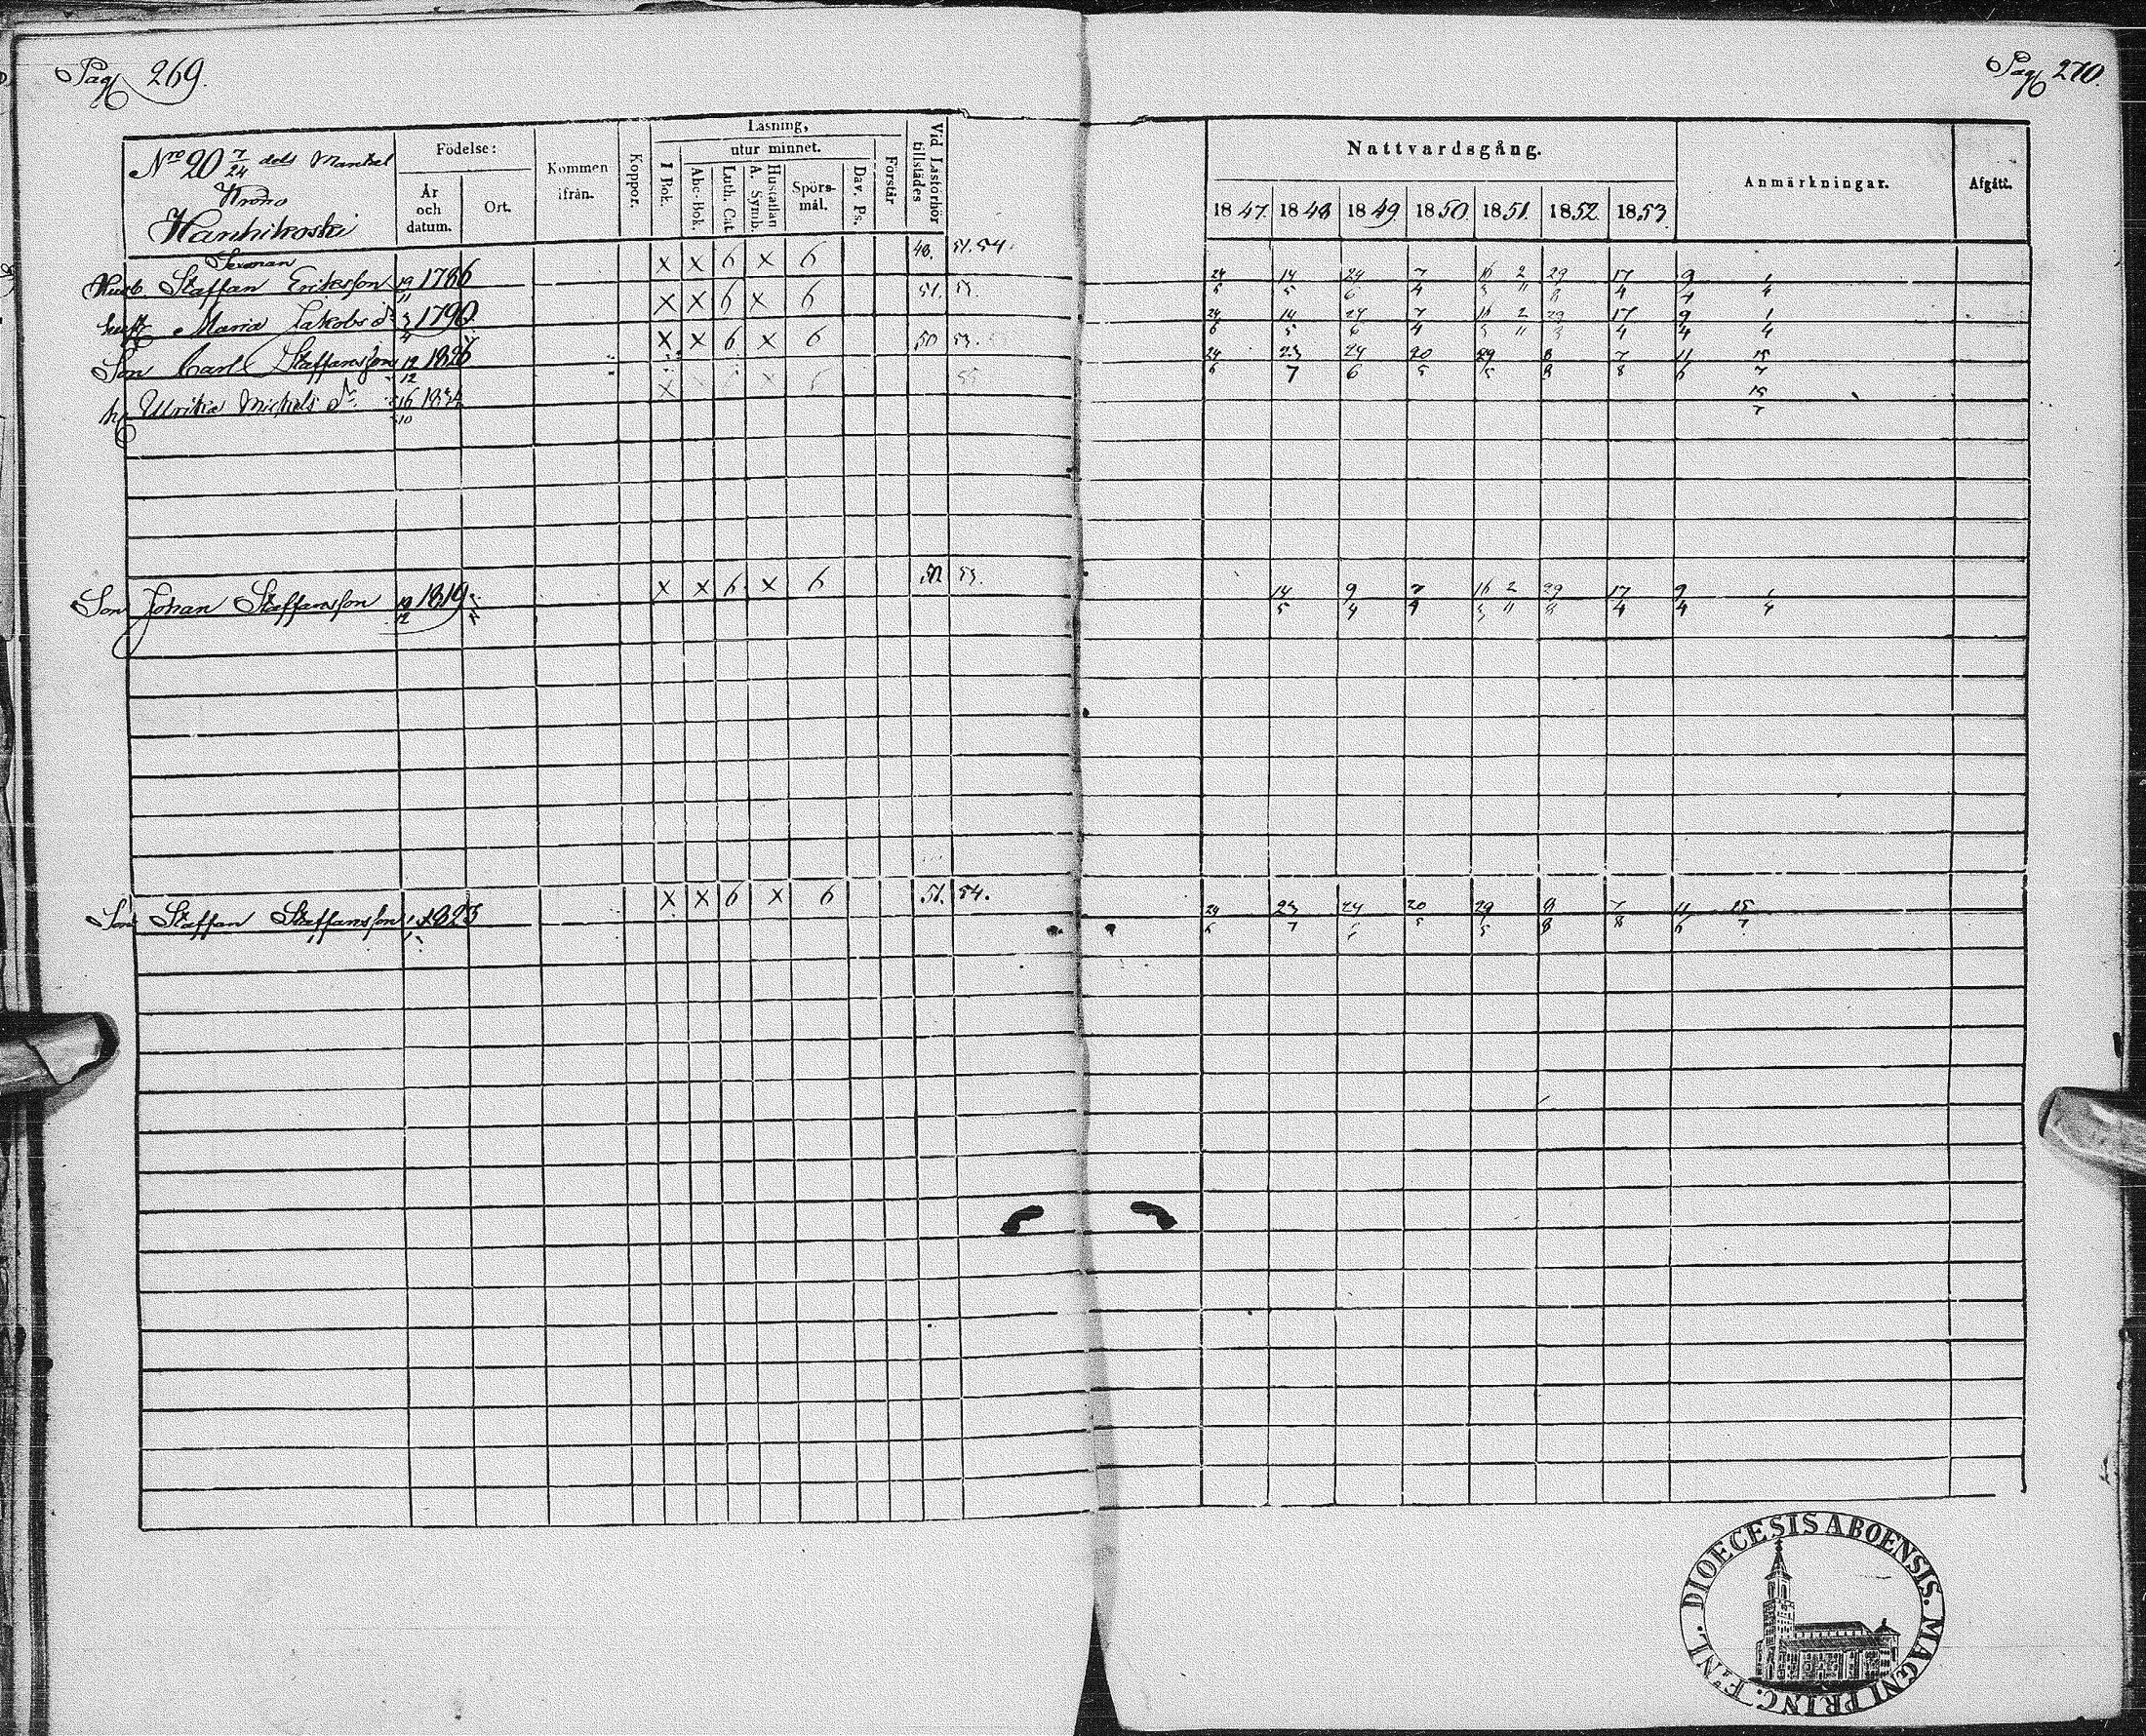 Pag 269.
Pag 270.
Nro 20 7/24 dels Mantal
Krono
Födelse:
År och datum.
Ort.
Kommen ifrån.
Koppor.
Läsning,
utur minnet.
I Bok.
Abc-Bok.
Luth. Cat.
Hustaflan A. Symb.
Spörs-mål.
Dav. Ps.
Förstår
Vid Läsförhör tillstädes
Nattvardsgång.
1847. 1848 1849 1850. 1851. 1852. 1853.
Anmärkningar.
Afgått.
Sexman
Husb. Staffan Eriksson 19/11 1786 X X 6 X 6 48. 51. 54. 24/5 14/5 24/6 7/4 2/11 29/8 17/4 9/4 1/4
hust Maria Jakobs dr 1790 X X 6 X 6 51. 24/6 14/5 24/6 7/4 2/11 17/4 9/4 1/4
Son Carl Staffansson 12/12 1826 X X 6 X 6 50 24/6 23/7 24/6 20/5 29/5 8/8 7/8 11/6 15/7
h Ulrika Mickels dr 16/10 1834 X 55 15/7
Son Johan Staffansson 1819 X X 6 X 6 14/5 9/4 7/4 2/11 29/8 17/4 9/4 1/4
Son Staffan Staffansson 1823 X X 6 X 6 51. 54. 24/6 23/7 20/5 29/5 7/8 11/6 15/7
DIOECESIS ABOENSIS. MAGNI PRINC. F:NI.